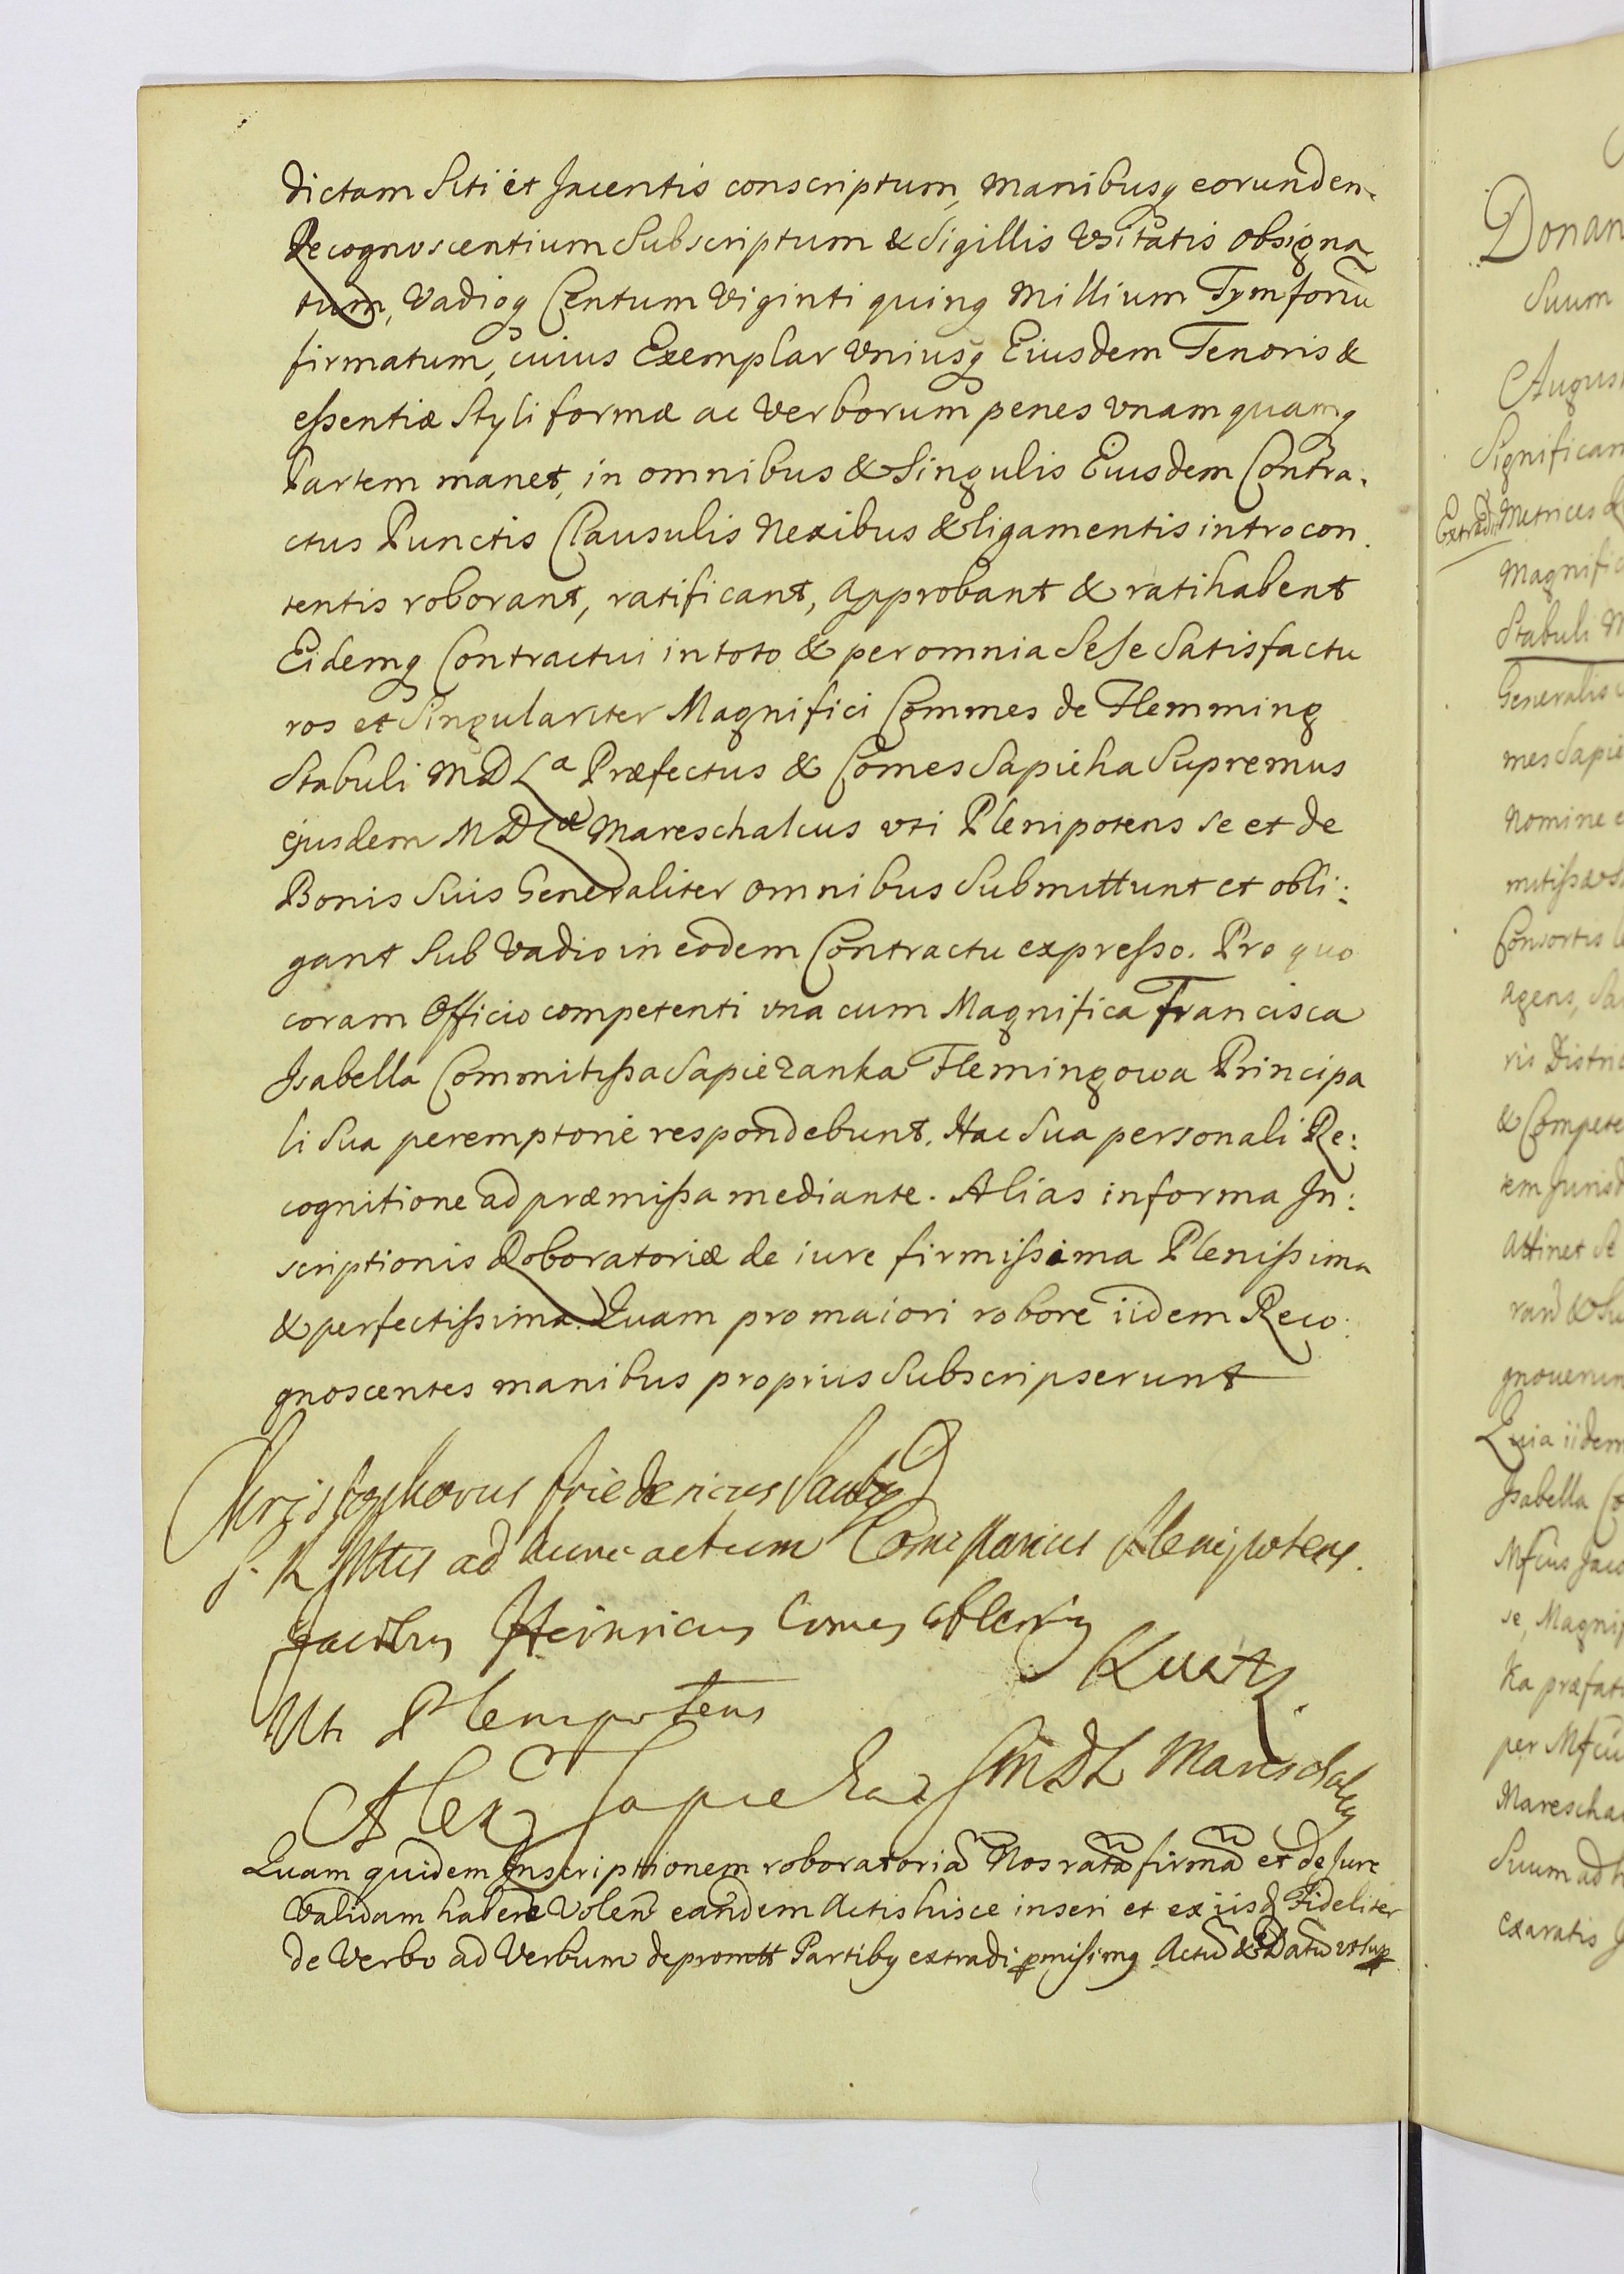 dictam Siti et Jacentis conscriptum, Manibusq eorundem
Recognoscentium Subscriptum & Sigillis Vsitatis obsigna
tum, Vadioq Centum Viginti quinq Millium Tymforũ
firmatum, cuius Exemplar Vniusq Eiusdem Tenoris &
eßentiæ Styli formæ ac Verborum penes vnam quamq
Partem manet, in omnibus & Singulis Eiusdem Contra.
ctus Punctis Clausulis Nexibus & ligamentis intro con
tentis roborant, ratificant, Approbant & ratihabent
Eidemq Contractui in toto & per omnia Sese Satisfactu
ros et Singulariter Magnifici Commes de Flemming
Stabuli M D L a Præfectus & Comes Sapieha Supremus
ejusdem M D L æ Mareschalcus vti Plenipotens se et de
Bonis Suis Generaliter omnibus Submittunt et obli:
gant Sub Vadio in eodem Contractu expreßo. Pro quo
coram Officio competenti vna cum Magnifica Francisca
Isabella Commitißa Sapiezanka Flemingowa Principa
li Sua peremptorie respondebunt. Hac Sua personali Re:
cognitione ad præmißa mediante. Alias in forma In:
scriptionis Roboratoriæ de iure firmißima Plenißima
& perfectißima. Quam pro maiori robore iidem Reco:
gnoscentes manibus propriis Subscripserunt
Christophorus Friedericus
ad hunc actum Plenipotens.
Jacobus Heinricus Comes
Uti Plenipotens
Alex Sapieha MDL
Quam quidem Inscriptionem roboratoriã Nos ratã firmã et de Jure
Validam habere Volen eandem Actis hisce inseri et ex iisd Fideliter
de Verbo ad Verbum depromtt Partibq extradi pmisimq Actũ & Datũ vt sup
Donan
Suum
August
Significam
Extradit
Metrices
Magnific
Stabuli M
Generalis
mes Sapie
Nomine e
Consortis
Agens, Sa
ris Distric
& Compete
em Jurisd
Attinet Se
gnouerun
Quia iidem
Isabella Co
Mfcus Jaco
se, Magnif
ka præfat
per Mfcu
Mareschal
Suum ad h
exaratis